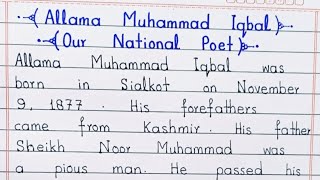 (Allama Muhammad Iqbal)
(Our National Poet)
Allama Muhammad Iqbal was
born in Sialkot on November
9, 1877. His forefathers
came from Kashmir. His father
Sheikh Noor Muhammad was
a pious man. He passed his